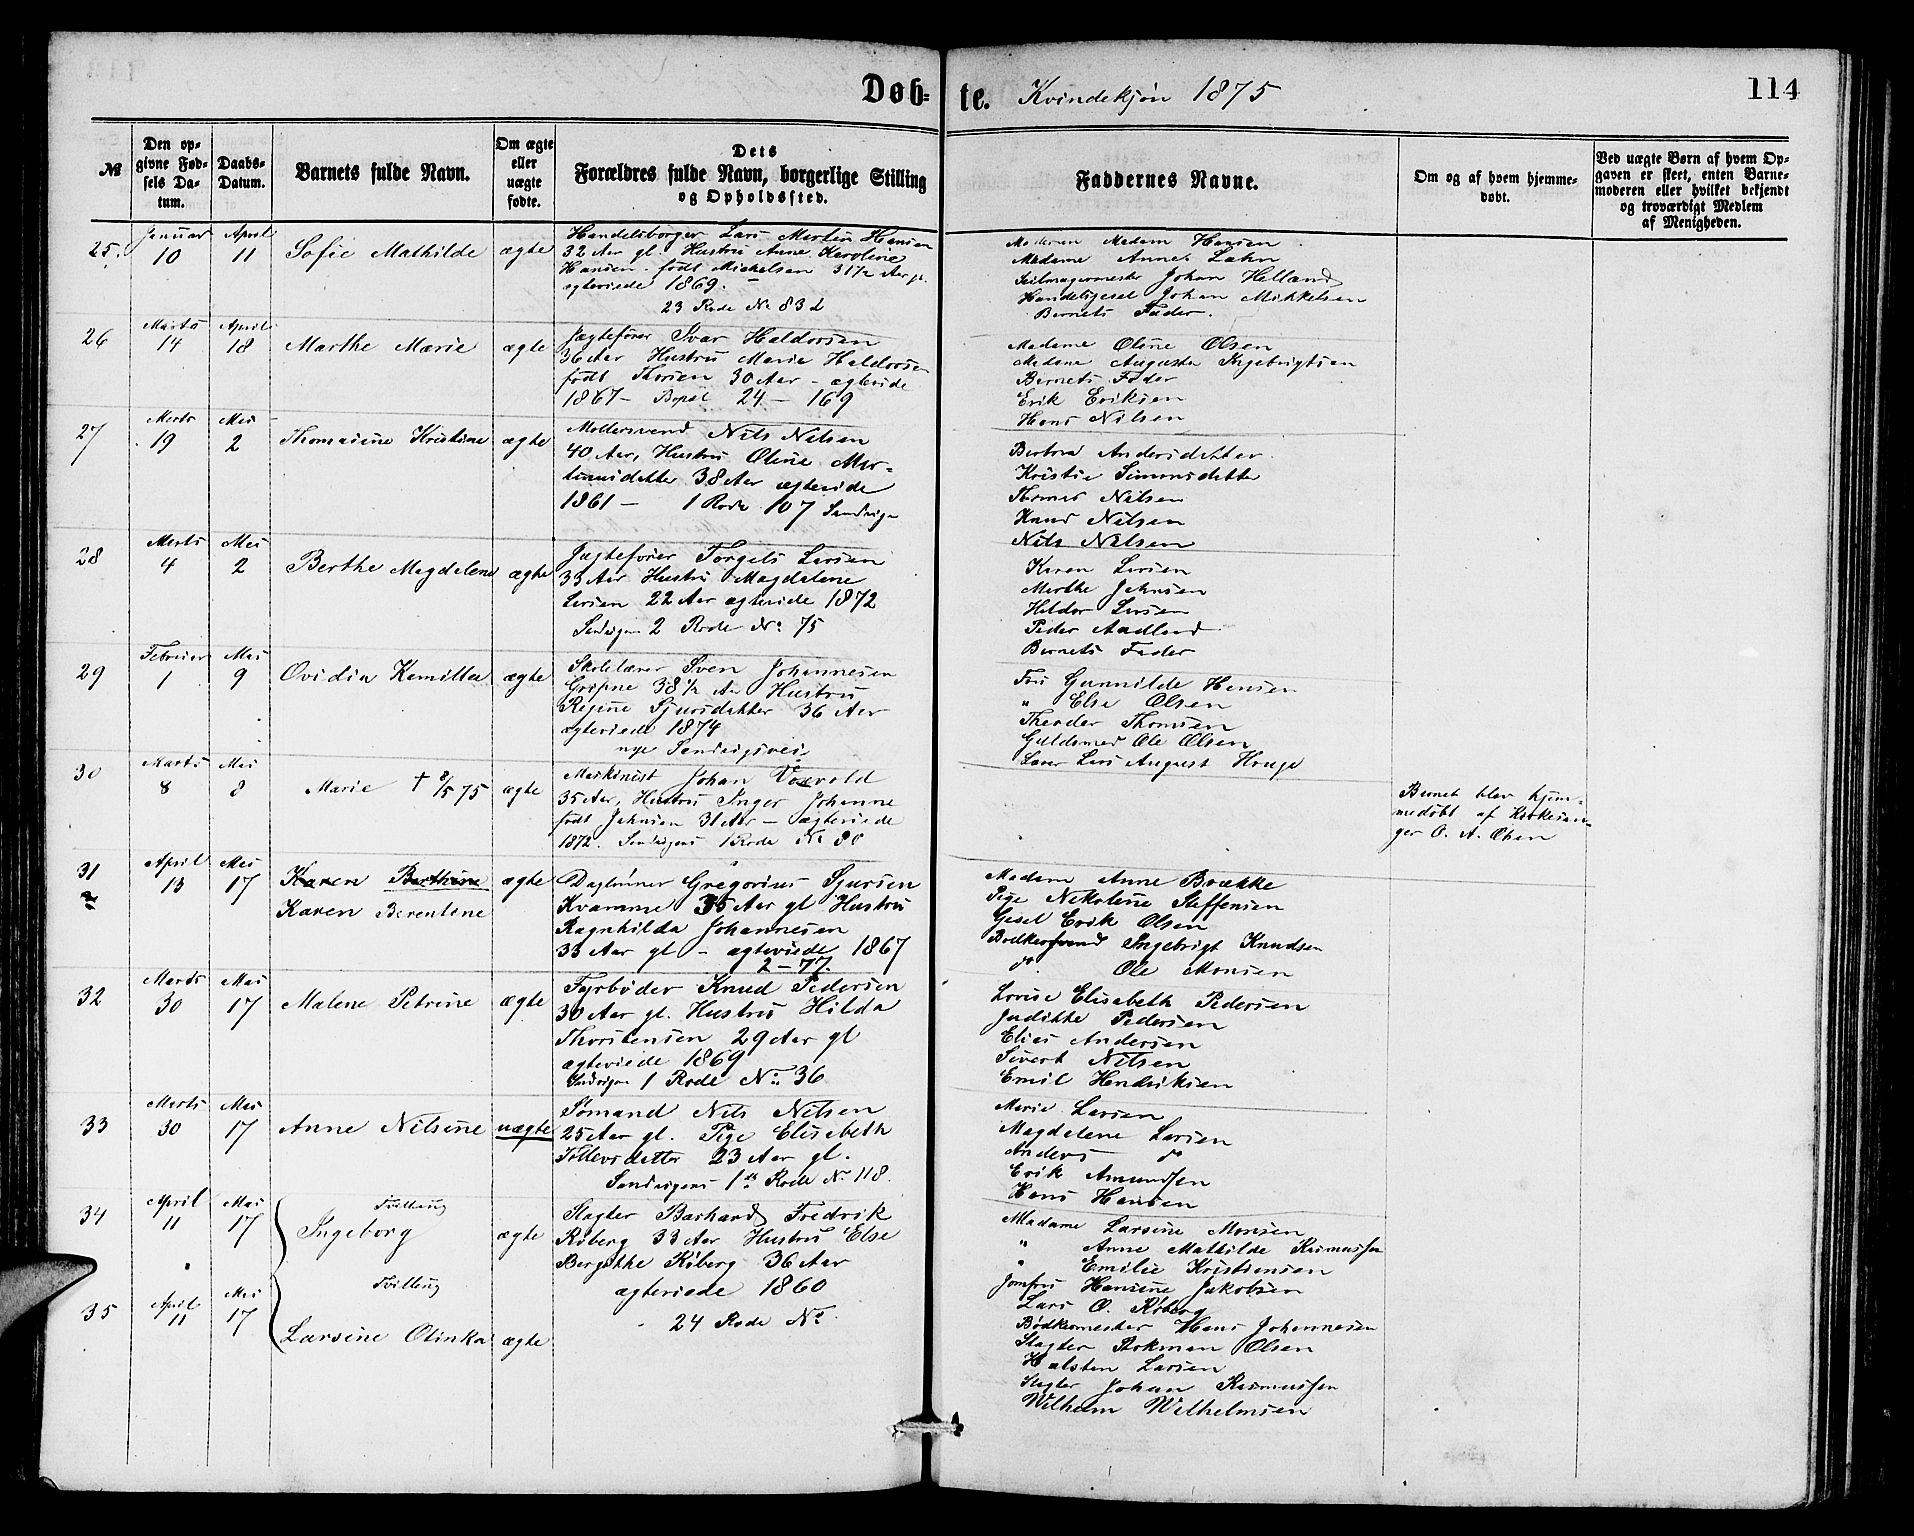 Døb=
te. Kvindekjøn 1875
114
№
Den op-
givne Fød-
sels Da-
tum.
Daabs-
Datum.
Barnets fulde Navn.
Om ægte
eller
uægte
fødte.
Dets
Forældres fulde Navn, borgerlige Stilling
og Opholdssted.
Faddernes Navne.
Om og af hvem hjemme-
døbt.
Ved uægte Børn af hvem Op-
gaven er skeet, enten Barne-
moderen eller hvilket bekjendt
og troværdigt Medlem
af Menigheden.
25.
Januar
10
April
11
Sofie Mathilde
ægte
Handelsborger Lars Martin Hansen
32 Aar gl. Hustru Anne Karoline
Hansen født Mickelsen 31 1/2 Aar gl.
egteviede 1869.
23 Rode № 83 d
Moderen Madam Hansen
Madame Anne Lahn
Seilmagermester Johan Helland
Handelsgesel Johan Mikkelsen
Barnets Fader.
26
Marts
14
April
18
Marthe Marie
ægte
Jægtefører Ivar Haldorsen
36 Aar Hustru Marie Haldorsen
født Thorsen 30 Aar - ægteviede
1867 - Bopæl 24 - 169
Madame Oline Olsen
Madame Augusta Ingebrigtsen
Barnets Fader
Erik Eriksen
Hans Nilsen
27
Marts
19
Mai
2
Thomasine Kristine
ægte
Møllersvend Nils Nilsen
40 Aar, Hustru Oline Mor-
tensdatter 38 Aar ægteviede
1861 - 1 Rode 107 Sandvign
Andersdatter
Kristie Simonsdatter
Thomas Nilsen
Knud Nilsen
Nils Nilsen
28
Marts
4
Mai
2
Berthe Magdalene
ægte
Jægtefører Torgels Larsen
33 Aar Hustru Magdalene
Larsen 22 Aar ægteviede 1872
Sandvign 2 Rode № 75
Karen Larsen
Marthe Johnsen
Haldor Larsen
Peder Aadland
Barnets Fader
29
Februar
1
Mai
9
Ovidia Kamilla
ægte
Skolelærer Sven Johannesen
Gripne 38 1/2 Aar Hustru
Regine Sjursdatter 36 Aar
ægteviede 1874
nye Sandvigsvei
Fru Gunnilde Hansen
" Else Olsen
Theodor Thomsen
Guldsmed Ole Olsen
Lærer Lars August Houge
30
Marts
8
Mai
8
Marie † 8/5 75
ægte
Maskinist Johan Voxvold
35 Aar, Hustru Inger Johanne
født Johnsen 31 Aar - ægteviede
1872. Sandvigens 1 Rode № 80
Barnet blev hjem-
medøbt af Kirkesan-
ger O. A. Olsen
31
April
13
Mai
17
Karen Berthine
Karen Berentine
ægte
Daglønner Gregorius Sjursen
Kvamme 35 Aar gl Hustru
Ragnhilda Johannesen
33 Aar gl - ægteviede 1867
2 - 77.
Madam Anne Brække
Pige Nikoline Steffensen
Gesel Erik Olsen
Bødkersvend Ingebrigt Knudsen
do. Ole Monsen
32
Marts
30
Mai
17
Malene Petrine
ægte
Fyrbøder Knud Pedersen
30 Aar gl. Hustru Hilda
Thorstensen 29 Aar gl
ægteviede 1869
Sandvign 1 Rode № 36
Lovise Elisabeth Pedersen
Judithe Pedersen
Elias Andersen
Sivert Nilsen
Emil Hendriksen
33
Marts
30
Mai
17
Anne Nilsine
uægte
Sømand Nils Nilsen
25 Aar gl. Pige Elisabeth
Tollevsdatter 23 Aar gl.
Sandvigens 1ste Rode № 118.
Marie Larsen
Magdalene Larsen
Anders do
Erik Amundsen
Hans Hansen
34
April
11
Mai
17
Tvilling
Ingeborg
ægte
Slagter Barhard Fredrik
Røberg 33 Aar Hustru Else
Bergithe Røberg 36 Aar
ægteviede 1860
24 Rode №
Madame Larsine Monsen
" Anne Mathilde Rasmussen
" Emilie Kristiansen
Jomfru Hansine Jakobsen
Lars O. Røberg
35
April
11
Mai
17
Tvilling
Larsine Olinka
ægte
Bødkermester Hans Johannesen
Slagter Rokman Olsen
Halsten Larsen
Slagter Johan Rasmussen
Wilhelm Wilhelmsen